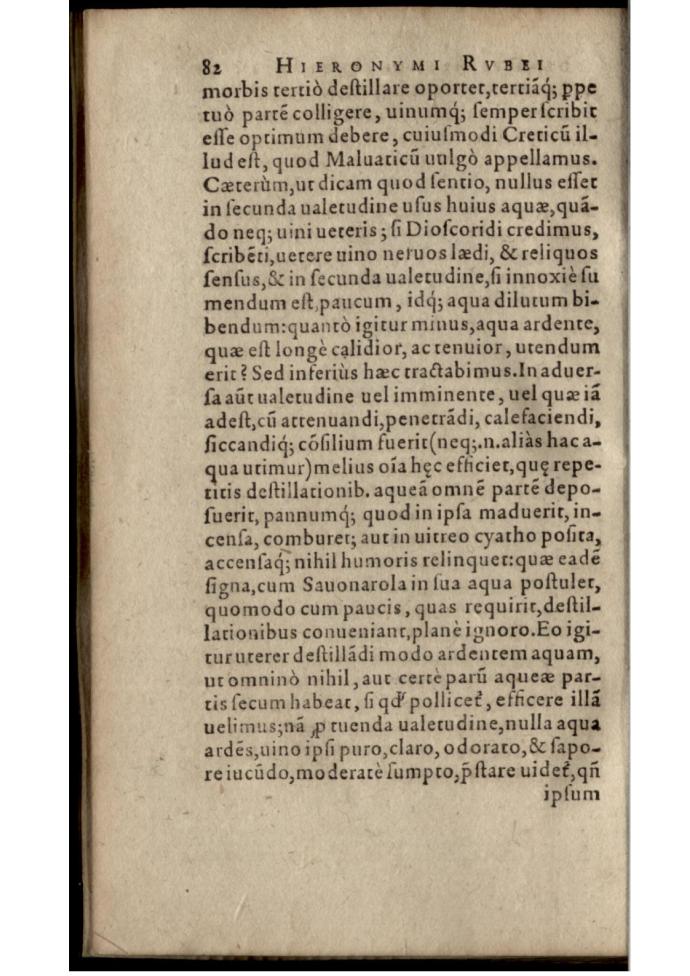 82 HIERONYMI RVBEI
morbis tertiò destillare oportet,tertiáq́; ꝑpe
tuò partē colligere, uinumq́; semper scribit
esse optimum debere, cuiusmodi Creticū il-
lud est, quod Maluaticū uulgò appellamus.
Cæterùm,ut dicam quod sentio, nullus esset
in secunda ualetudine usus huius aquæ,quā-
do neq; uini ueteris; si Dioscoridi credimus,
scribēti,uetere uino neruos lædi, & reliquos
sensus,& in secunda ualetudine,si innoxiè su
mendum est,paucum, idq́; aqua dilutum bi-
bendum:quantò igitur minus,aqua ardente,
quæ est longè calidior, ac tenuior, utendum
erit? Sed inferiùs hæc tractabimus.In aduer-
sa aūt ualetudine uel imminente, uel quæ iā
adest,cū attenuandi,penetrādi, calefaciendi,
siccandiq́; cōsilium fuerit(neq;.n.aliàs hac a-
qua utimur)melius oīa hęc efficiet,quę repe-
titis destillationib. aqueā omnē partē depo-
suerit, pannumq́; quod in ipsa maduerit, in-
censa, comburet; aut in uitreo cyatho posita,
accensaq́; nihil humoris relinquet:quæ eadē
signa,cum Sauonarola in sua aqua postulet,
quomodo cum paucis, quas requirit,destil-
lationibus conueniant,planè ignoro.Eo igi-
tur uterer destillādi modo ardentem aquam,
ut omninò nihil, aut certè parū aqueæ par-
tis secum habeat, si qđ pollicet̃, efficere illā
uelimus;nā ꝓ tuenda ualetudine,nulla aqua
ardēs,uino ipsi puro,claro, odorato,& sapo-
re iucūdo,moderatè sumpto,p̄stare uidet̃,qñ
ipsum